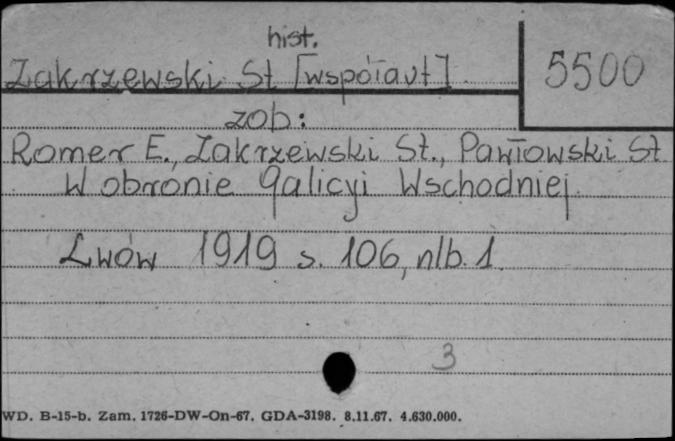 hist.
Zakrzewski St [współaut]
5500
zob:
Romer E., Zakrzewski St., Pawłowski St
W obronie Galicyi Wschodniej.
Lwów 1919 s. 106, nlb. 1.
3
WD. B-15-b. Zam. 1726-DW-On-67. GDA-3198. 8.11.67. 4.630.000.